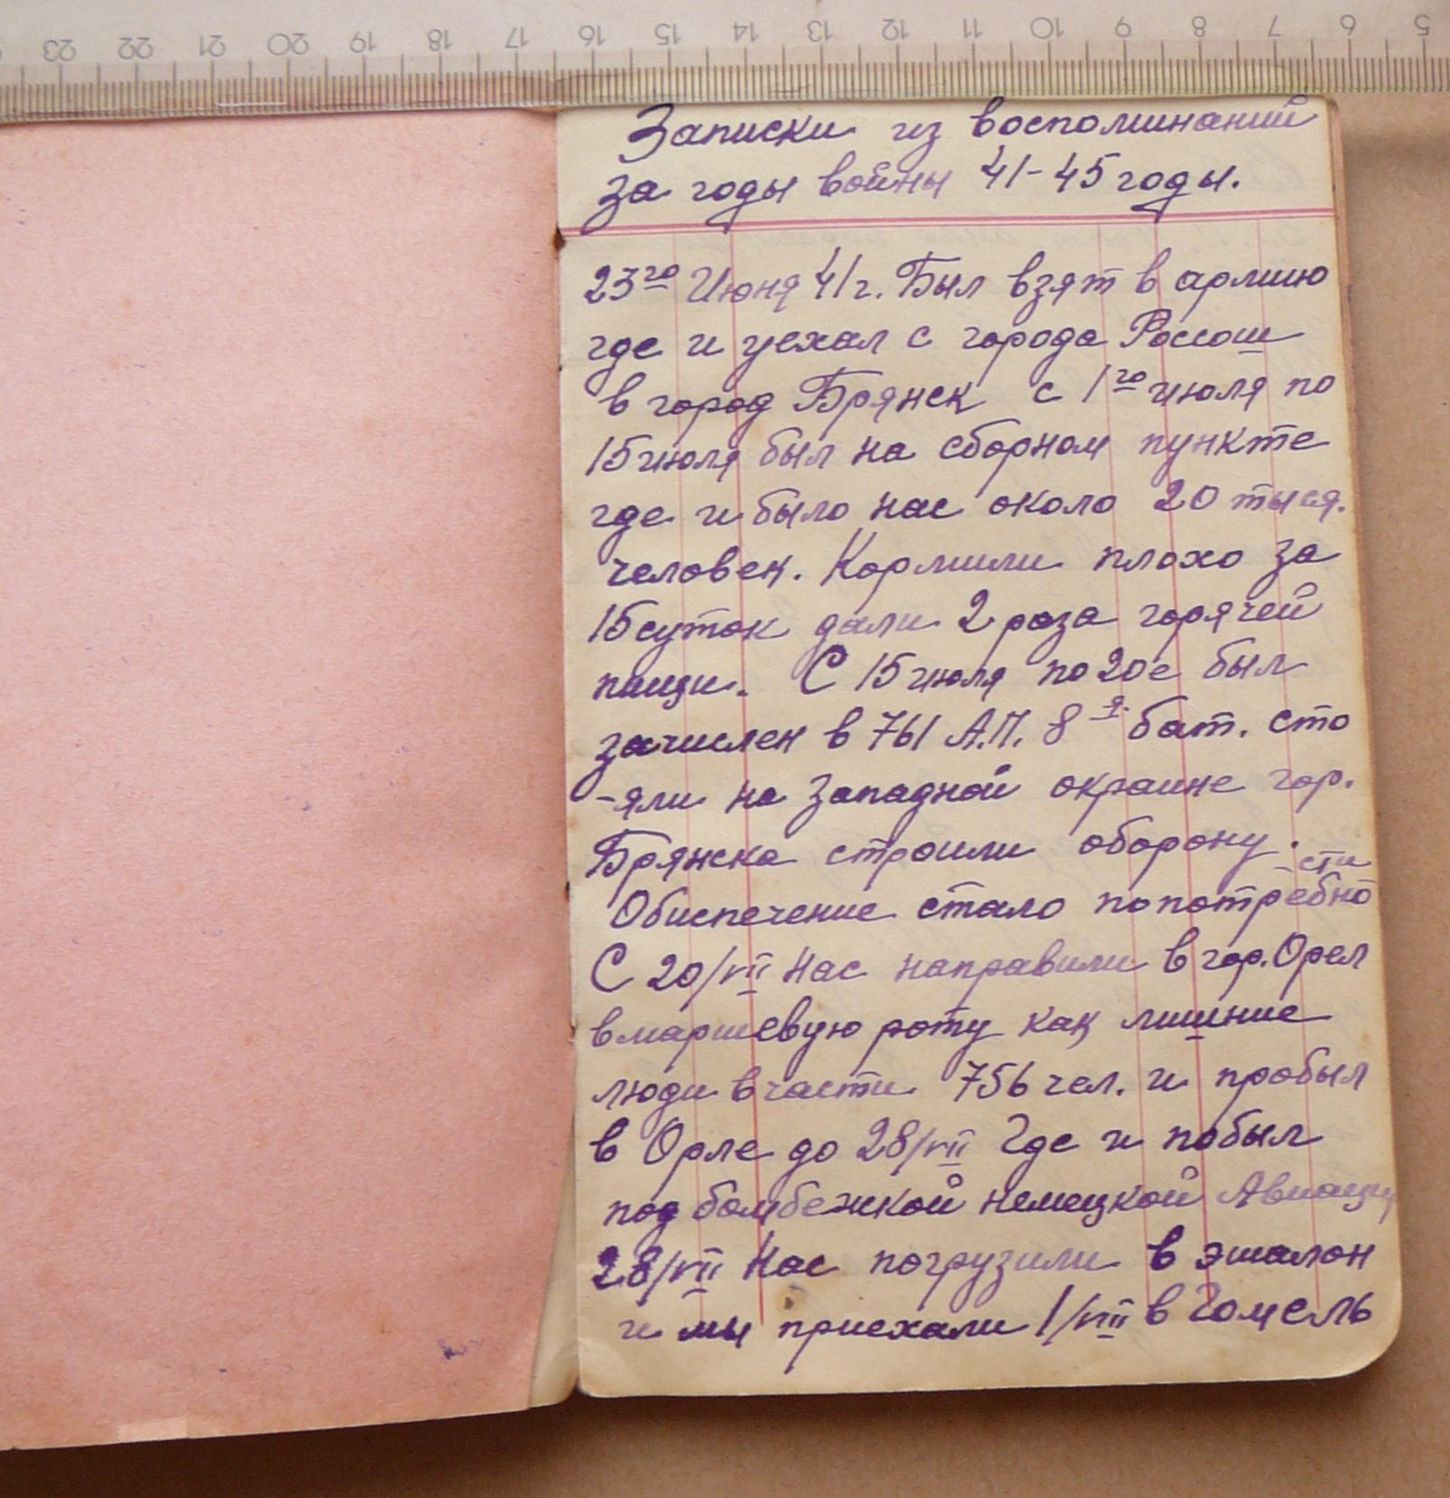 23 22 21 20 19 18 17 16 15 14 13 12 11 10 9 8 7 6 5
Записки из воспоминаний
за годы войны 41-45 годы.
23го Июня 41г. Был взят в армию
где и уехал с города Россош
в город Брянск с 1го июля по
15 июля был на сборном пункте
где и было нас около 20 тыся.
человек. Кормили плохо за
15 суток дали 2 роза горячей
пищи. С 15 июля по 20е был
зачислен в 761 А.П. 8я бат. сто
-яли на западной окраине гор.
Брянска строили оборону.
Обиспечение стало попотребности
С 20/VII Нас направили в гор. Орел
в маршевую роту как лишние
люди в части 756 чел. и пробыл
в Орле до 28/VII Где и побыл
под бомбежкой немецкой Авиации
28/VII Нас погрузили в эшалон
и мы приехали 1/VIII в Гомель